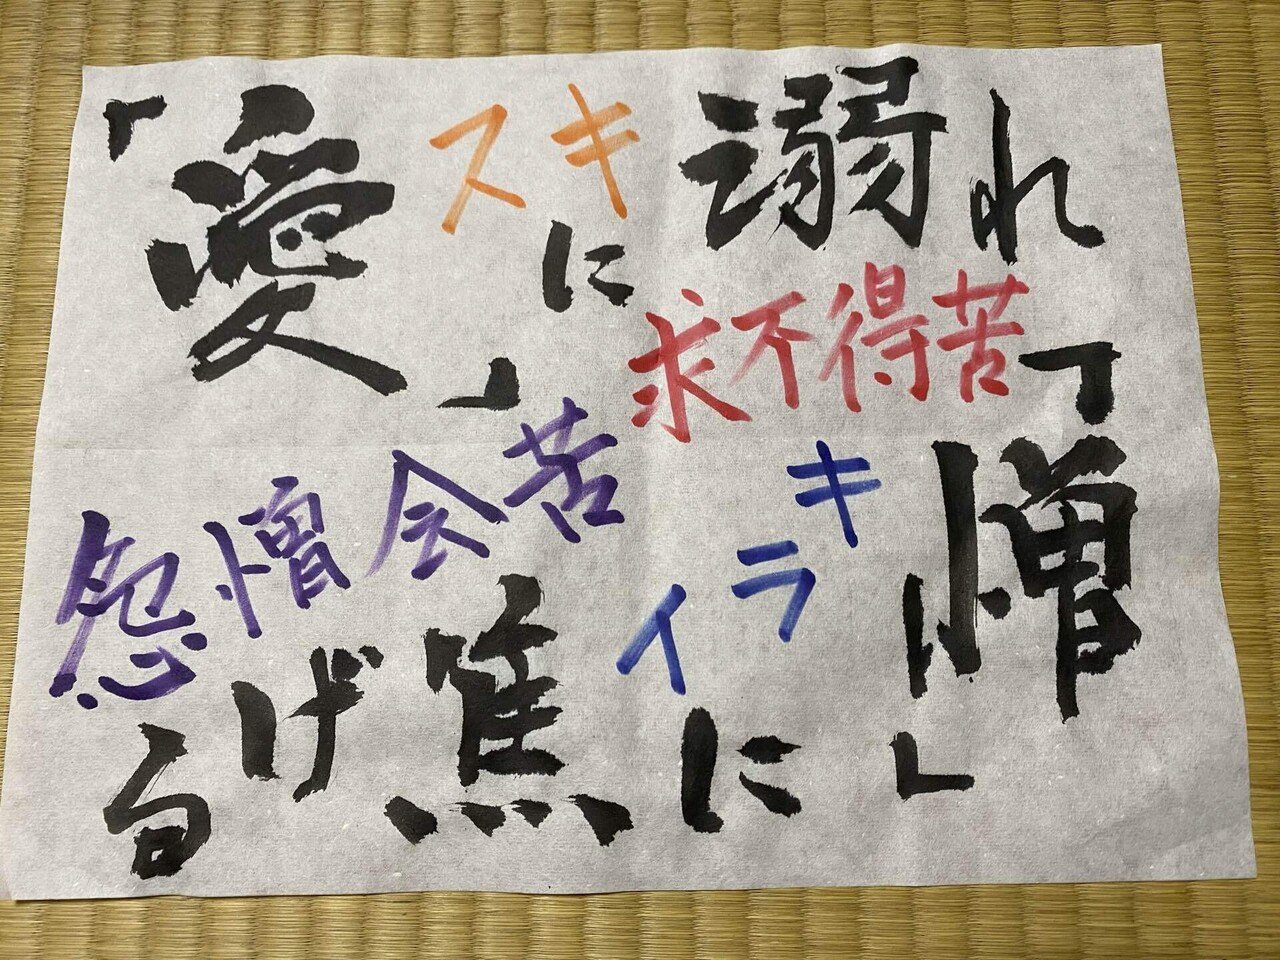 「愛」に溺れ
スキ
求不得苦
「憎」に焦げる
キライ
怨憎会苦